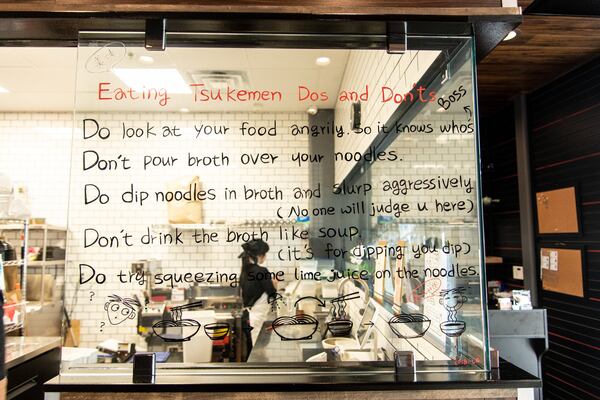 Eating Tsukemen Dos and Don'ts
Do look at your food angrily. So it knows who's Boss
Don't pour broth over your noodles.
Do dip noodles in broth and slurp aggressively
(No one will judge u here)
Don't drink the broth like soup.
(it's for dipping you dip)
Do try squeezing some lime juice on the noodles.
? ? ?